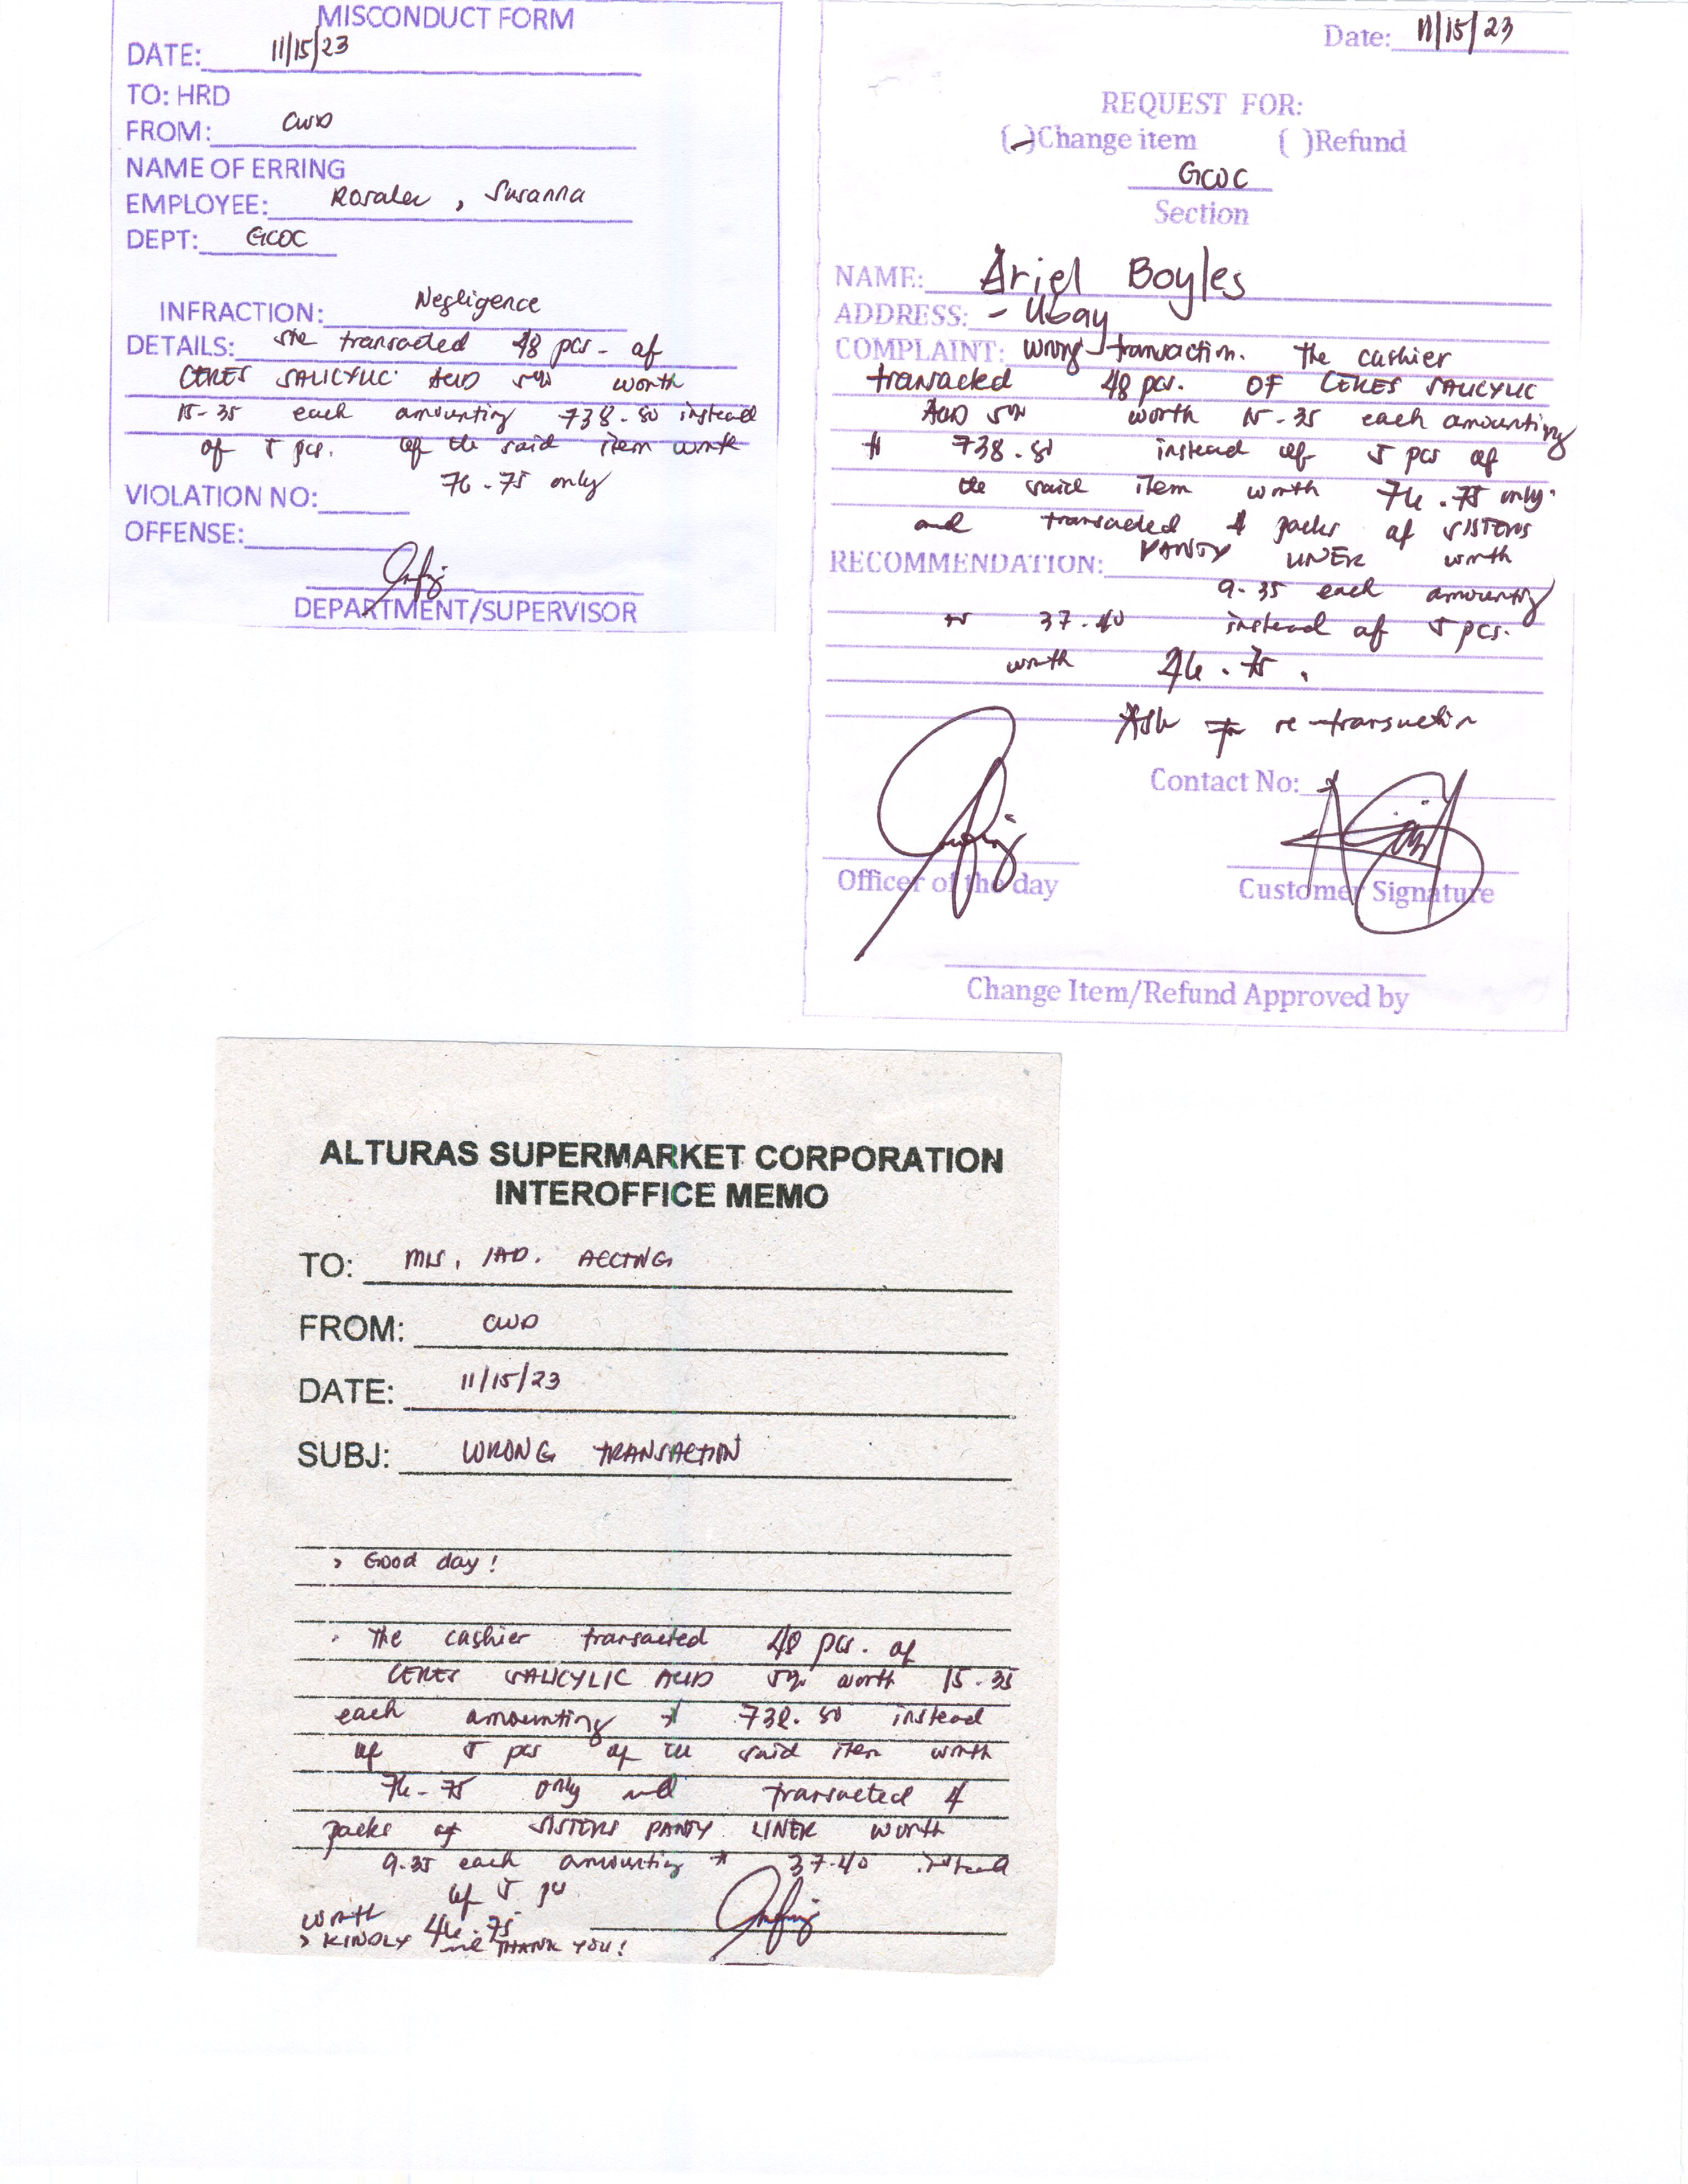 MISCONDUCT FORM
DATE: 11/15/23
TO: HRD
FROM: CWD
NAME OF ERRING
EMPLOYEE: Rosales, Susanna
DEPT: GCOC
INFRACTION: Negligence
DETAILS: she transacted 48 pcs. of
CERES SALICYLIC ACID 5% worth
15.35 each amounting 738.80 instead
of 5 pcs. of the said item worth
76.75 only
VIOLATION NO:
OFFENSE:
DEPARTMENT/SUPERVISOR
Date: 11/15/23
REQUEST FOR:
( )Change item ( )Refund
GCOC
Section
NAME: Ariel Boyles
ADDRESS: - Ubay
COMPLAINT: wrong transaction. The cashier
transacted 48 pcs. OF CERES SALICYLIC
ACID 5% worth 15.35 each amounting
738.80 instead of 5 pcs of
the said item worth 76.75 only.
and transacted 4 packs of SISTERS
RECOMMENDATION: PANTY LINER worth
9.35 each amounting
to 37.40 instead of 5 pcs.
worth 46.75.
Ask for re-transaction
Contact No:
Officer of the day
Customer Signature
Change Item/Refund Approved by
ALTURAS SUPERMARKET CORPORATION
INTEROFFICE MEMO
TO: MIS, IAD. ACCTNG
FROM: CWD
DATE: 11/15/23
SUBJ: WRONG TRANSACTION
> Good day!
. The cashier transacted 48 pcs. of
CERES SALICYLIC ACID 5% worth 15.35
each amounting to 738.80 instead
of 5 pcs of the said item worth
76.75 only and transacted 4
packs of SISTERS PANTY LINER worth
9.35 each amounting to 37.40 instead
of 5 pcs
worth 46.75
> KINDLY THANK YOU!